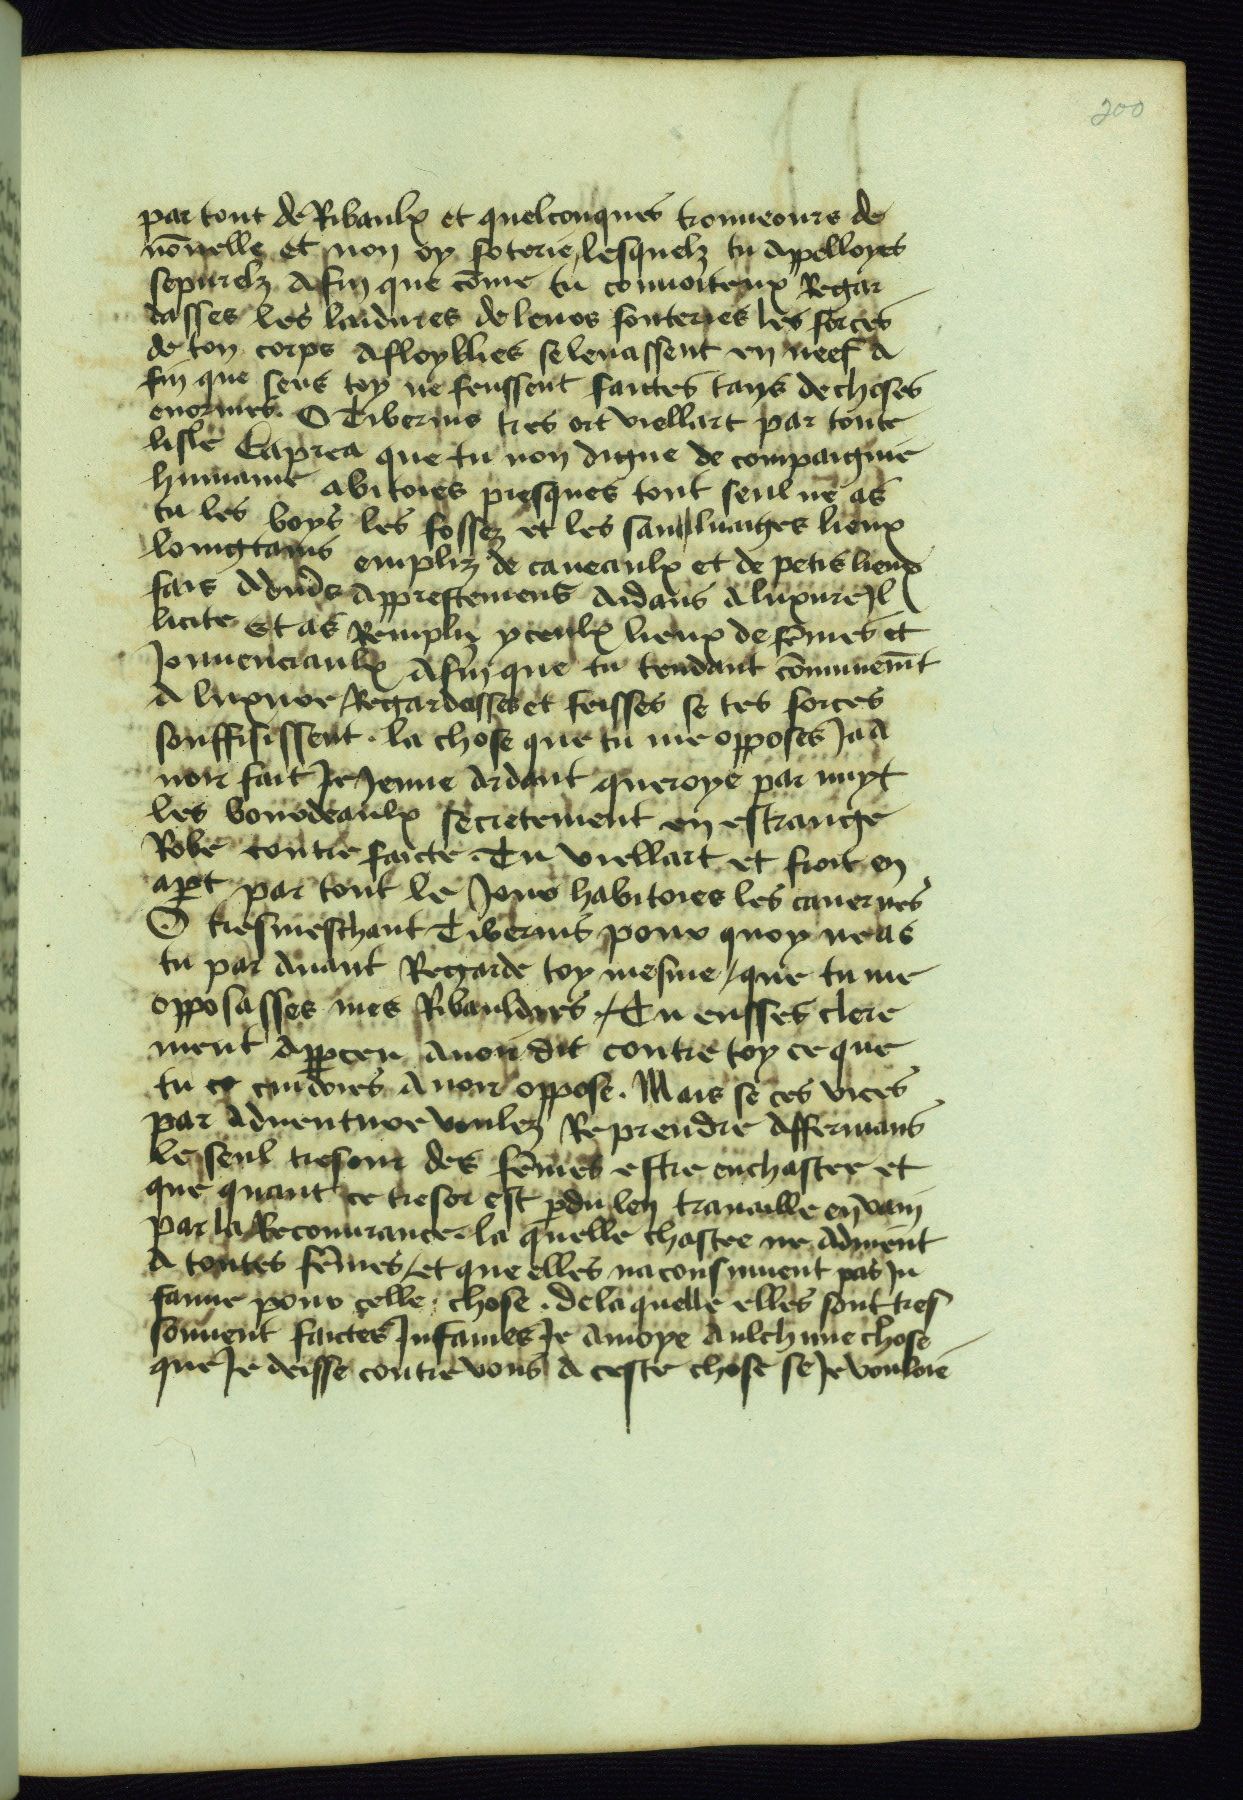 200
par tout de Ribaulx et quelconques trouueours de
nōuelle et non oy foterie, lesquelz tu appelloyes
sepurelz Afin que cōme tu conuoiteux Regar
dasses les laidures de leurs fouteries les forces
de ton corps afloyblies se leuassent en neef A
fin que sens toy ne feussent faictes tans de choses
enormes. O Tiberius tres ort viellart par toute
lisle Caprea que tu non digne de compaignie
humaine abitoies presques tout seul ne as
tu les boys les fossez et les sauluaiges lieux
loingtains empliz de caueaulx et de petis lieux
fais Appresteimens Aidans A luxure Il
licite Et as Rempliz yceulx lieux de fēmes et
Jouuenciaulx Afin que tu tendant cōmunemēt
A luxure / Regardasses et feisses se tes forces
souffisissent. la chose que tu me opposes Ja A
noir fait Je Jeune Ardant queroye par nuyt
les bourdeaulx secretement en estrange
Robe contrefaicte. Tu viellart et froit en
apert par tout le Jour habitoies les cauernes
O tresmeschant Tiberius pour quoy ne as
tu par auant Regarde toy mesme / que tu me
opposasses mes Ribauldies. / Tu eusses clere
ment appceu auoir dit contre toy ce que
tu cuidoies Auoir oppose. Mais se ces vices
par aduenture voulez Reprendre affermans
le seul tresour des fēmes estre enchastee et
que quant ce tresor est pdu len trauaille en vain
par la Recouurance. la quelle chastee ne aduient
A toutes fēmes / et que elles naconsuiuent pas In
famie pour celle chose. de laquelle elles sont tres
souuent faictes Infames Je Auroye Aulchune chose
que Je deisse contre vous A ceste chose se Je vouloie